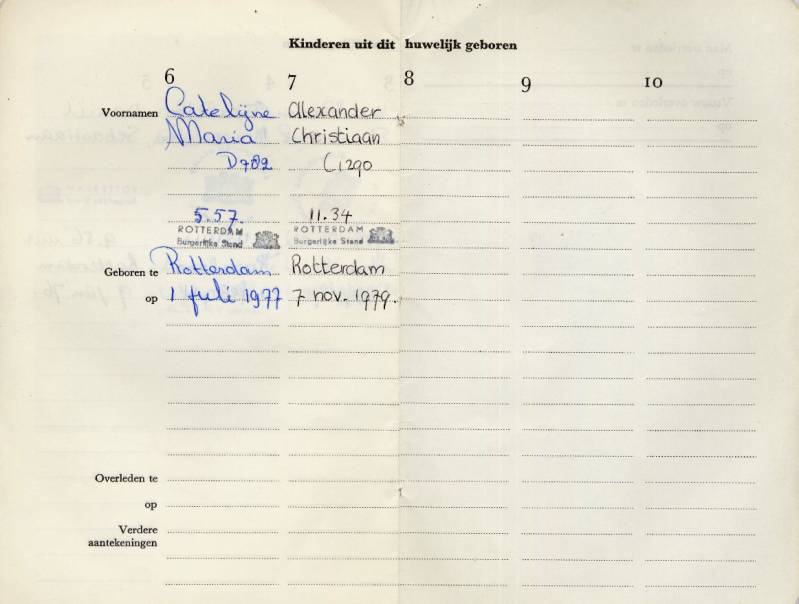 Kinderen uit dit huwelijk geboren
6 7 8 9 10
Voornamen Catelijne Alexander
Maria Christiaan
D782 C1290
5.57. 11.34
ROTTERDAM ROTTERDAM
Burgerlijke Stand Burgerlijke Stand
Geboren te Rotterdam Rotterdam
op 1 juli 1977 7 nov. 1979.
Overleden te
op
Verdere
aantekeningen